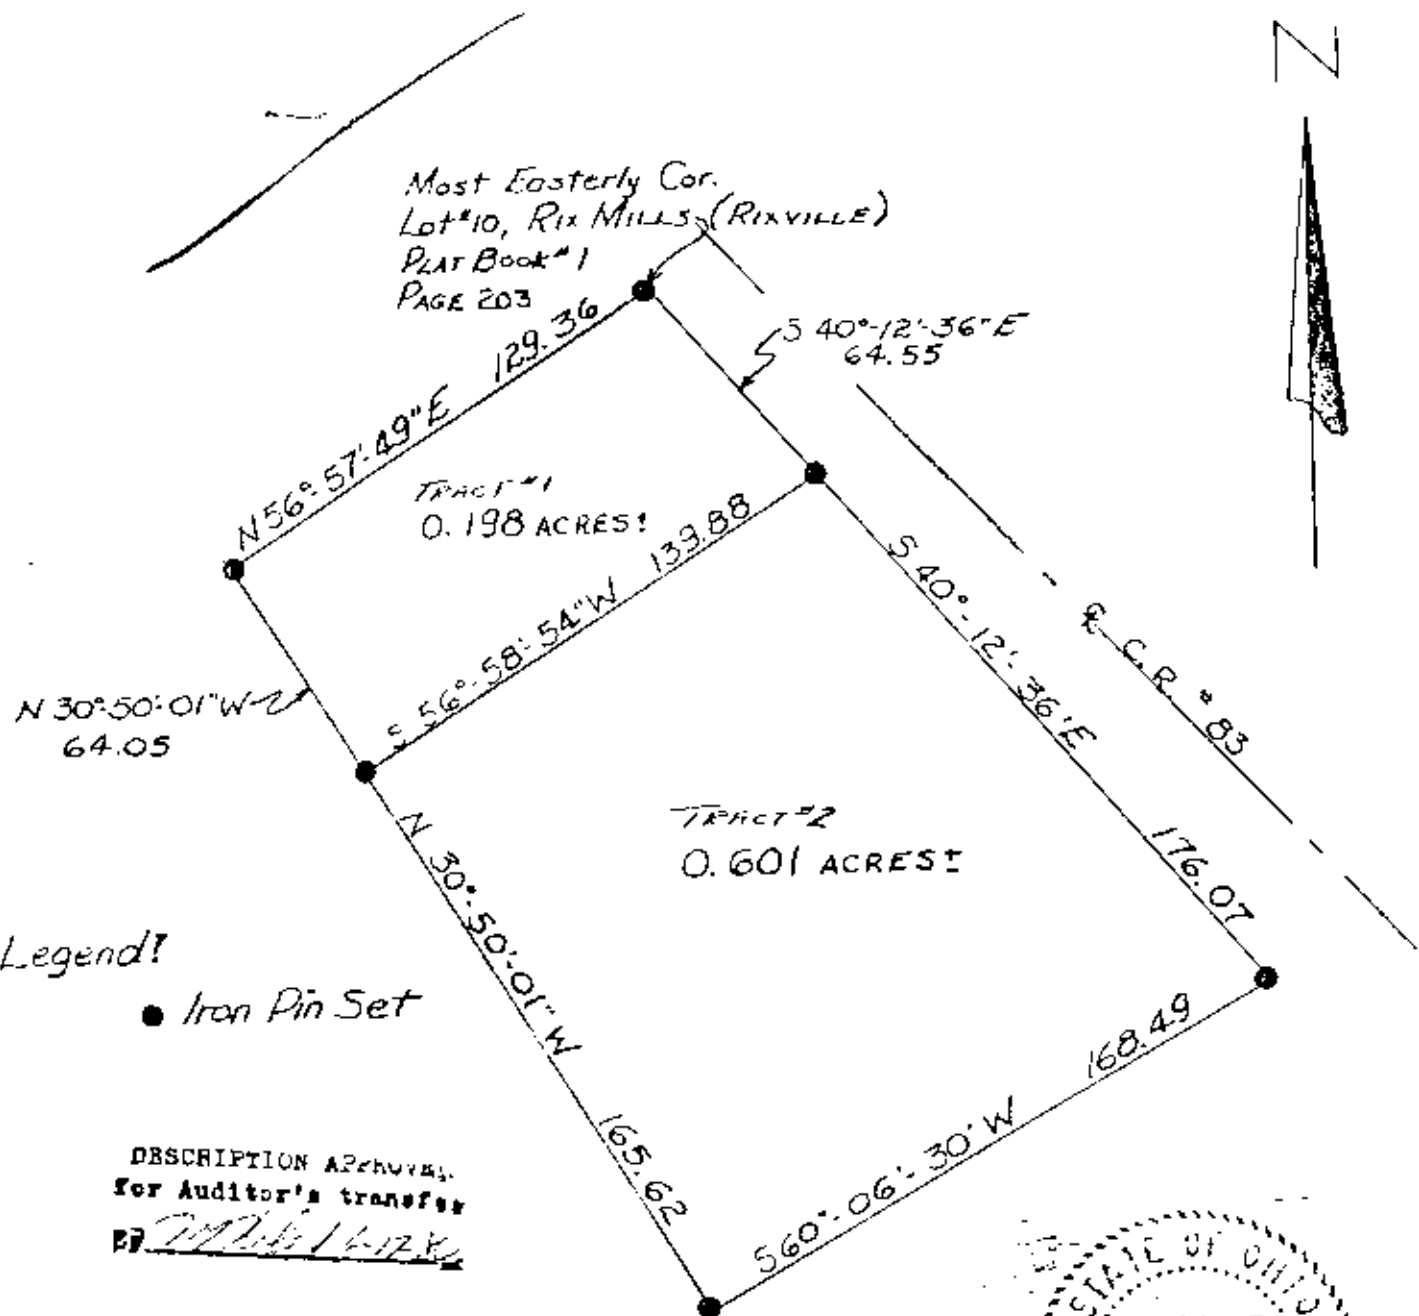 N
Most Easterly Cor.
Lot #10, RIX MILLS (RIXVILLE)
PLAT BOOK #1
PAGE 203
S 40°-12'-36" E
64.55
N 56°-57'-49" E 129.36
TRACT #1
0.198 ACRES±
S 56°-58'-54" W 139.88
N 30°-50'-01" W
64.05
S 40°-12'-36" E 176.07
℄ C.R. #83
TRACT #2
0.601 ACRES±
N 30°-50'-01" W 165.62
Legend:
● Iron Pin Set
S 60°-06'-30" W 168.49
DESCRIPTION APPROVAL
for Auditor's transfer
BY
STATE OF OHIO